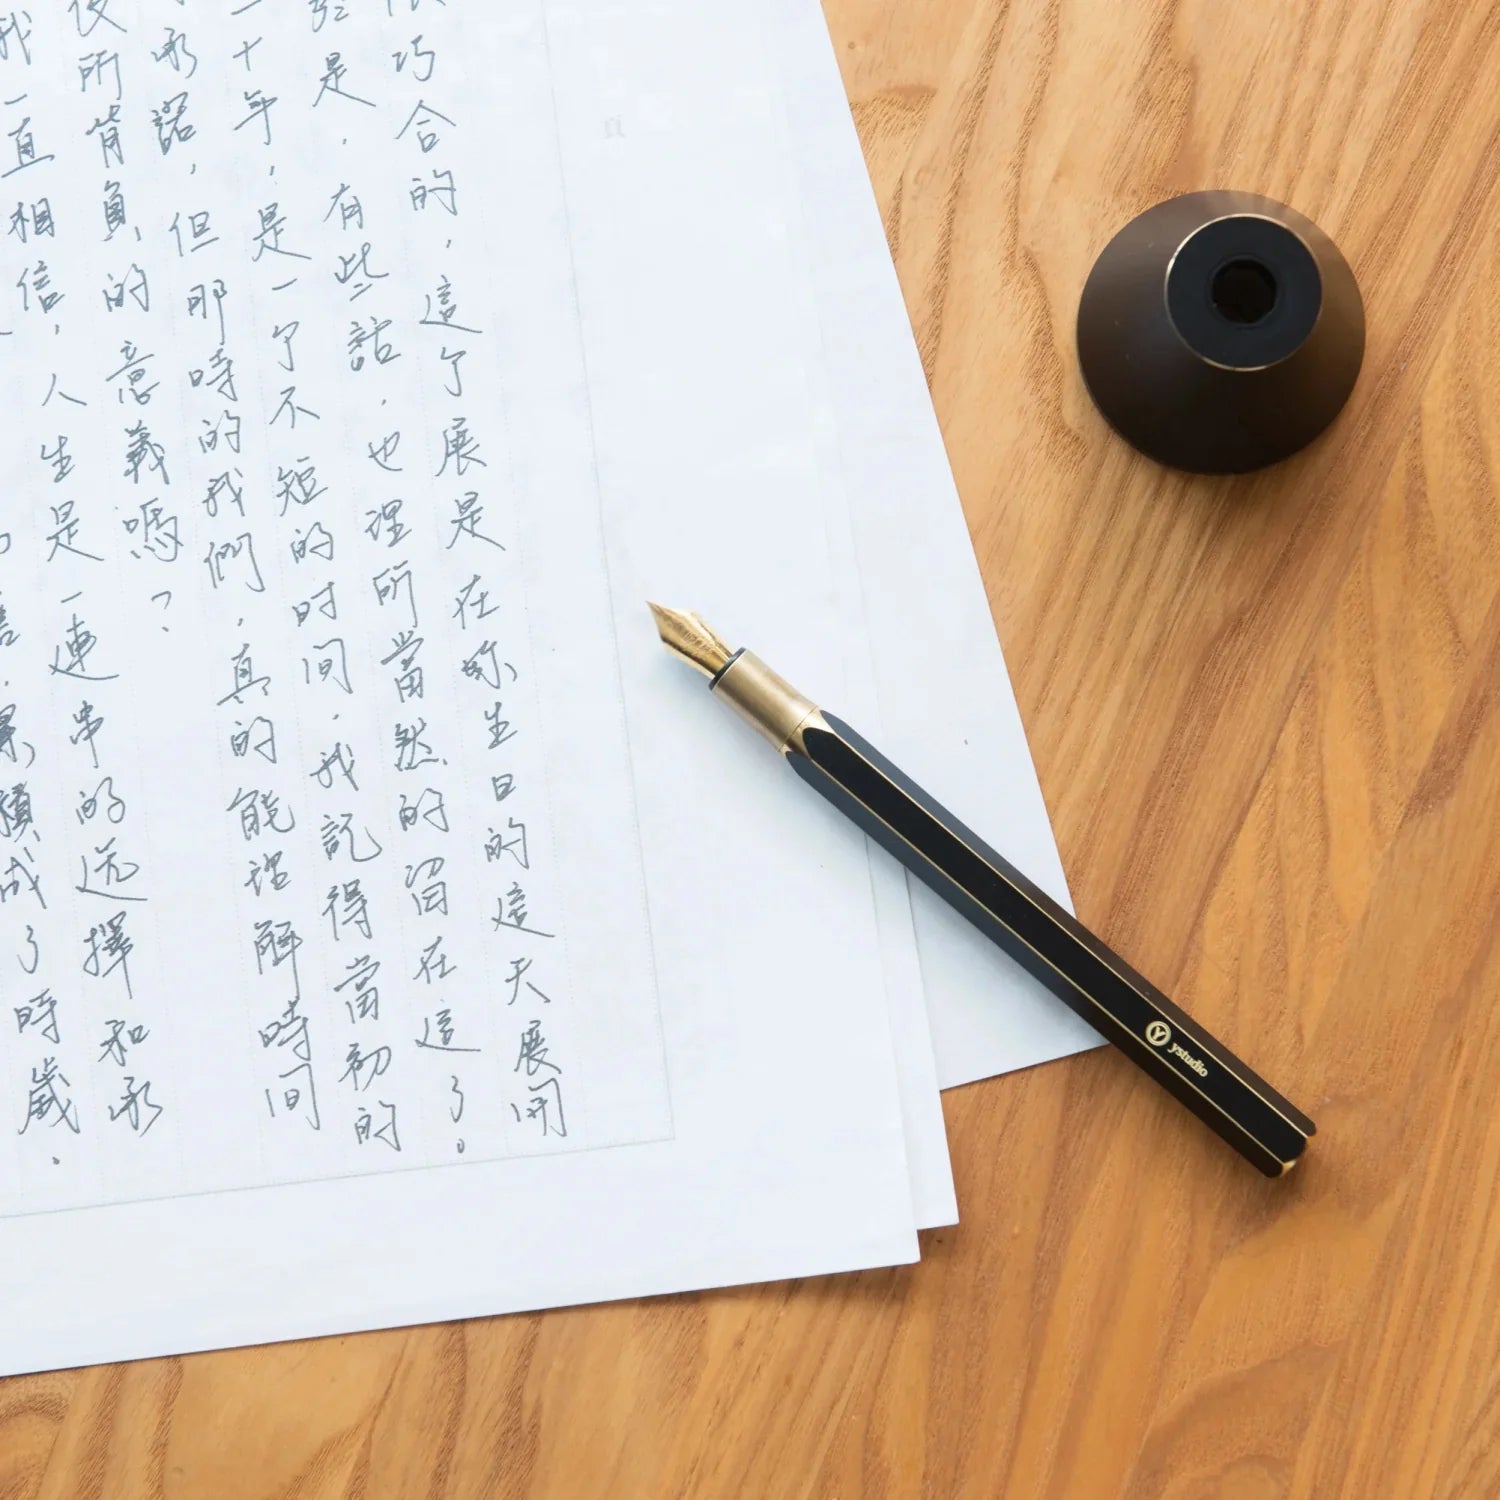 巧合的，這个展是在妳生日的這天展開
是，有些話，也理所當然的留在這了。
十年，是一个不短的时间，我記得當初的
承諾，但那時的我們，真的能理解時间
所背負的意義嗎？
我一直相信，人生是一連串的选擇和承
積成了時歲。
Y ystudio